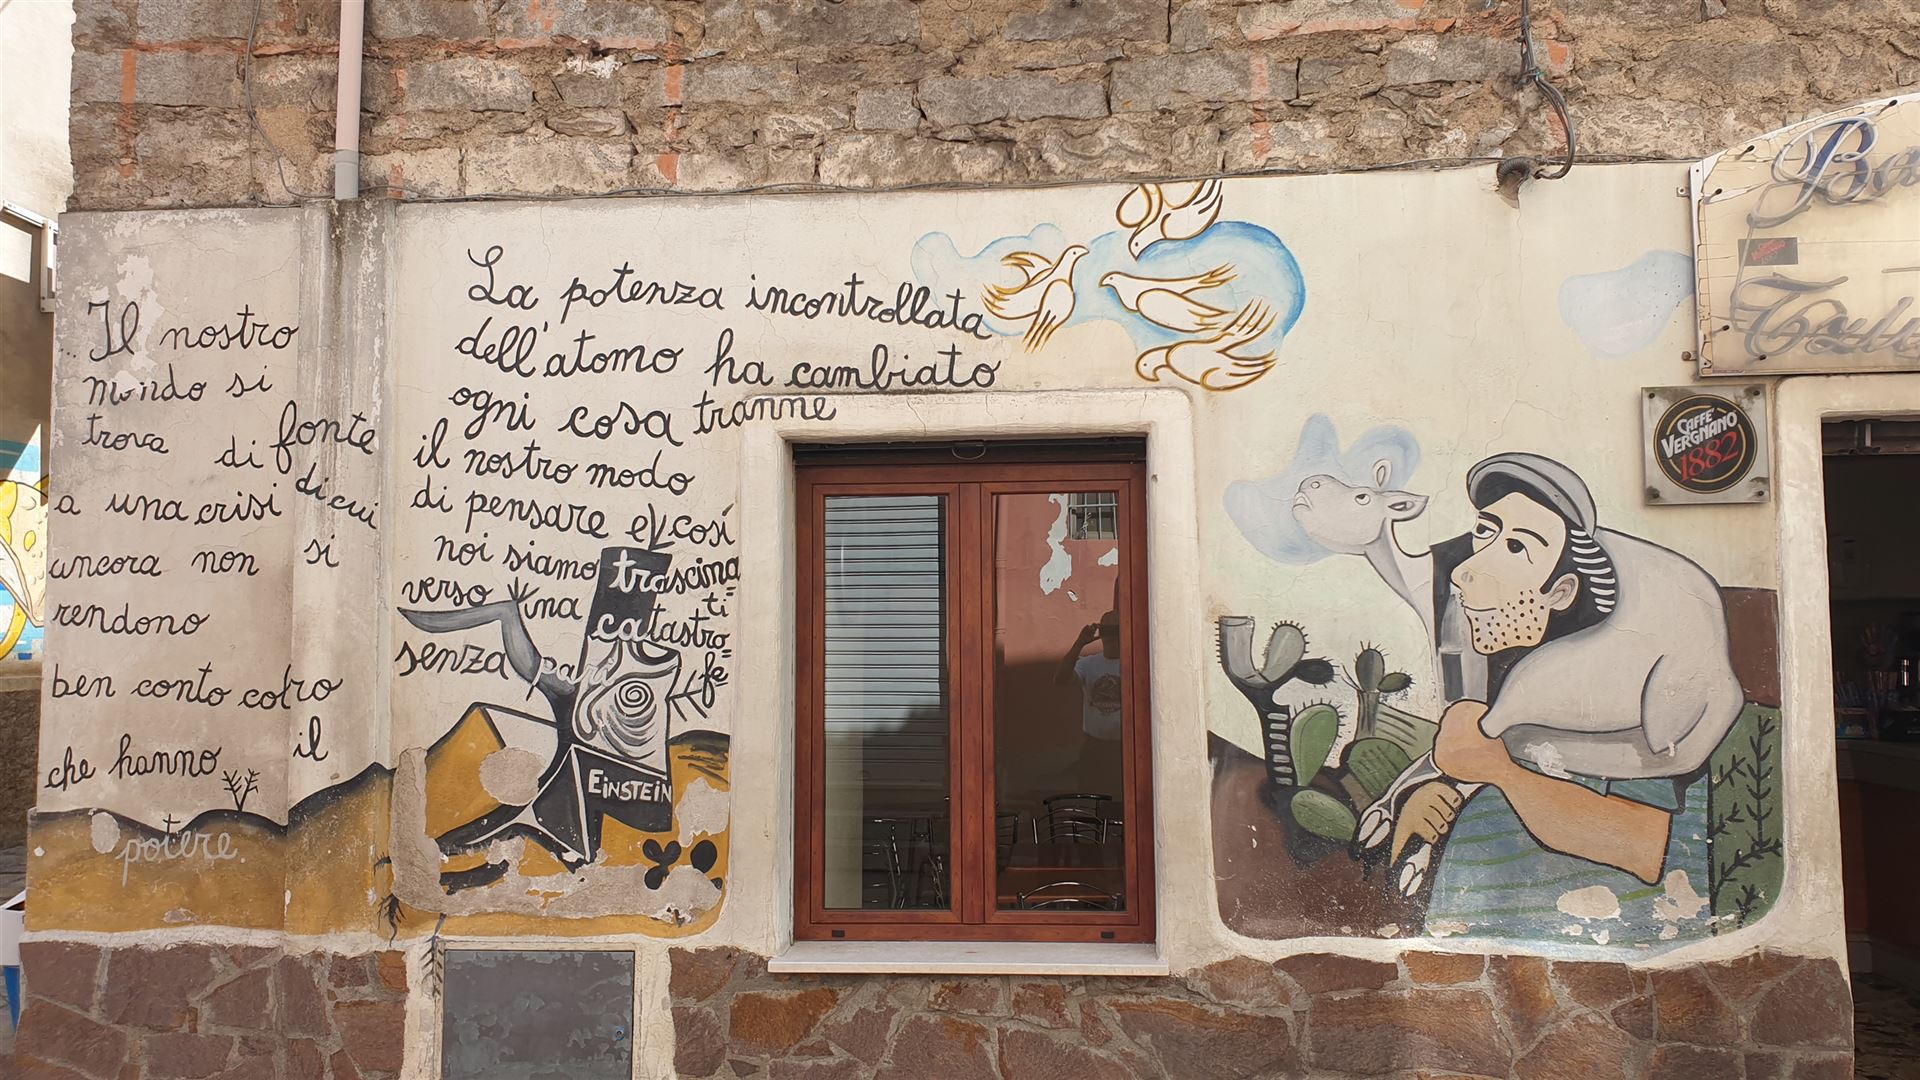 Il nostro
mondo si
trova di fronte
a una crisi di cui
ancora non si
rendono
ben conto colro
che hanno il
potere.
La potenza incontrollata
dell'atomo ha cambiato
ogni cosa tranne
il nostro modo
di pensare e così
noi siamo trascina=
ti
verso una catastro=
fe
senza pari
EINSTEIN
CAFFÈ
VERGNANO
1882